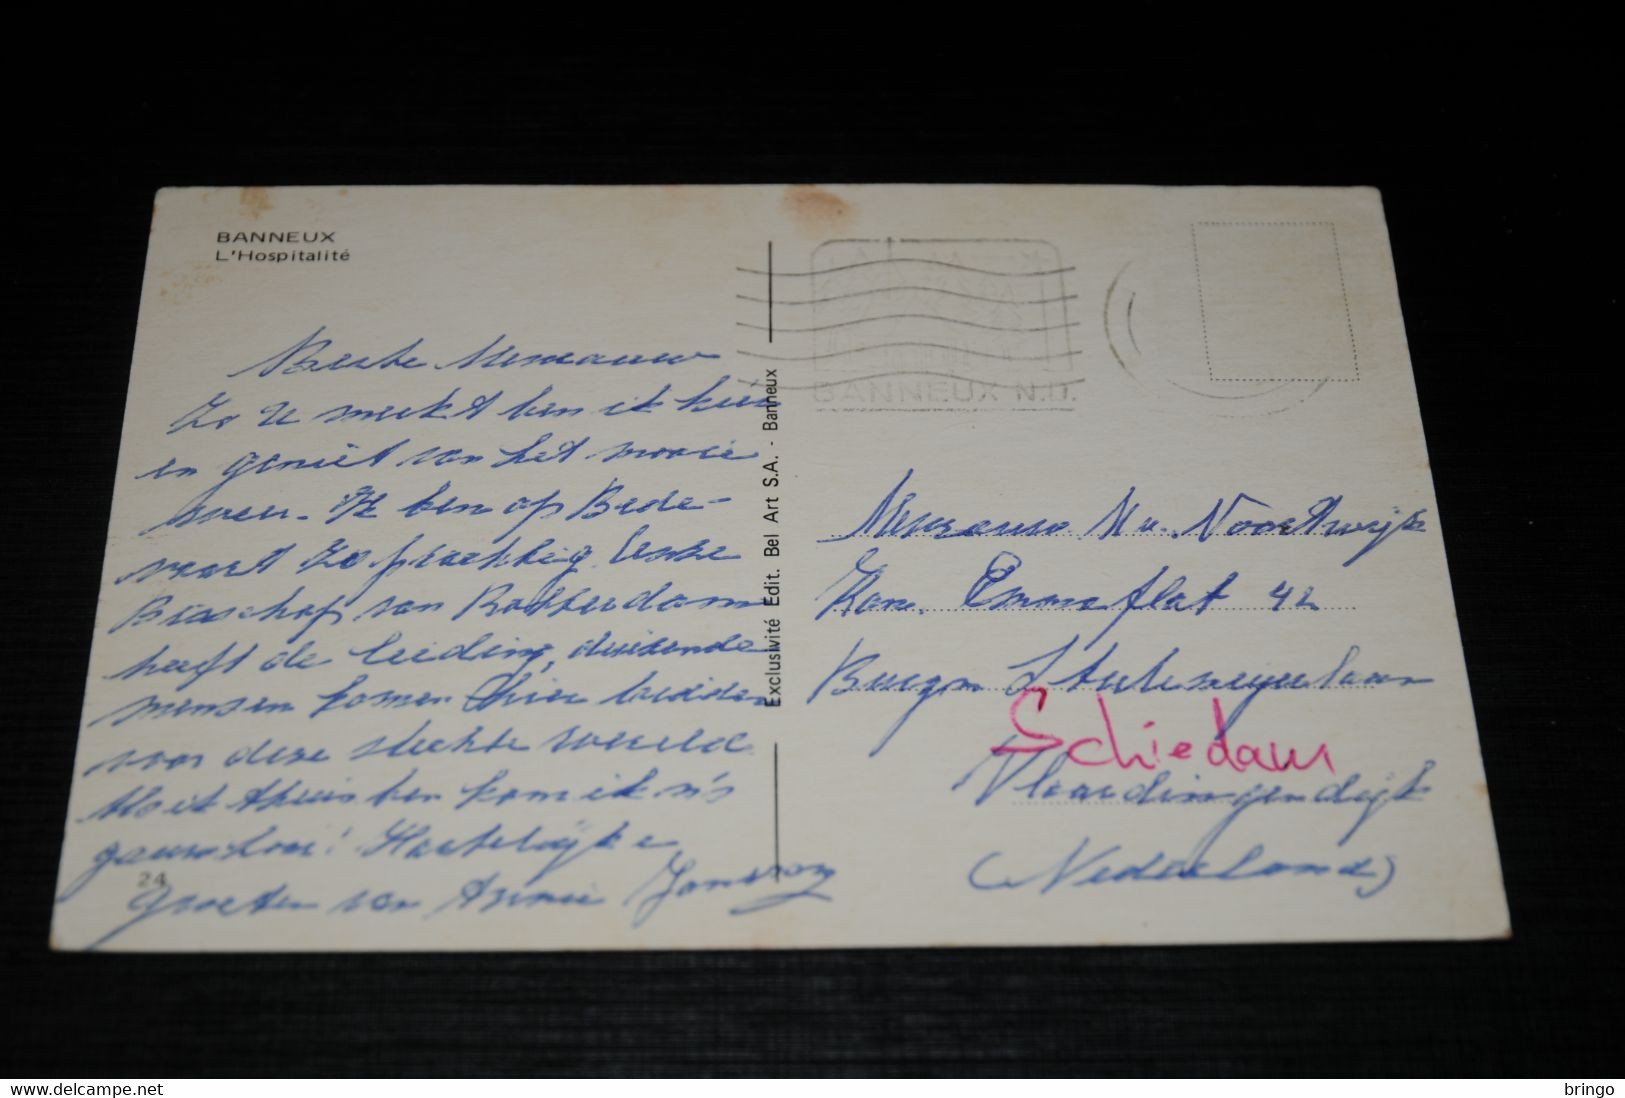 BANNEUX
L'Hospitalité
Beste Mevrouw
Zo U merkt ben ik hier
en geniet van het mooie
weer. Ik ben op Bede-
vaart zo prachtig. Onze
Bisschop van Rotterdam
heeft de leiding, duizende
mensen komen hier bidden
voor deze slechte wereld
thuis ben kom ik n's
Hartelijke
24
Groeten van Annie Jansen
Exclusivité Edit. Bel Art S.A. - Banneux
BANNEUX N.D.
Mevrouw v. Noortwijk
Kon. Emmaflat 42
Burgm Stulemeijerlaan
Schiedam
Vlaardingerdijk
(Nederland)
bidfun-delcampe.net
bringo